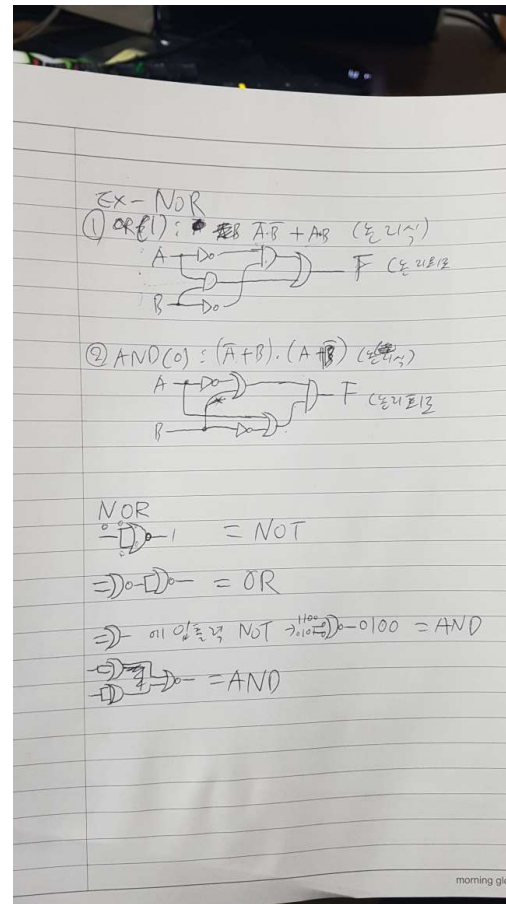 EX-NOR
① OR(1): A̅·B̅ + A·B (논리식)
A
F (논리회로
B
② AND(0): (A̅+B)·(A+B̅) (논리식)
A
F (논리회로
B
NOR
0 0 1 = NOT
= OR
에 입출력 NOT → 1100 1010 0100 = AND
= AND
morning gl